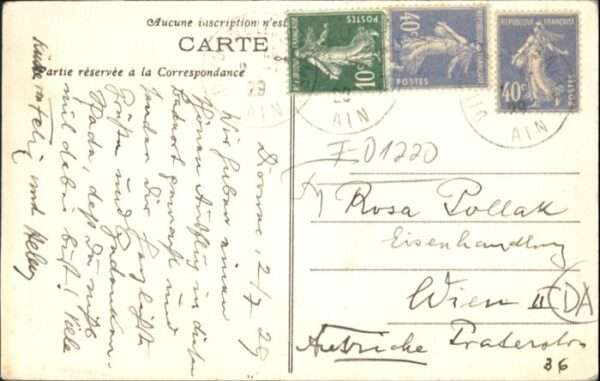 Aucune inscription n'est
CARTE
Partie réservée à la Correspondance
RÉPUBLIQUE FRANÇAISE
10c
POSTES
40c
POSTES
REPUBLIQUE FRANÇAISE
40c
POSTES
29
AIN
AIN
AIN
Divonne, 2/7 29
Wir haben einen
schönen Ausflug in diesen
Badeort gemacht und
senden Dir herzlichste
Grüße und Gedenken.
Schade, daß Du nicht
mit dabei bist! Viele
Küsse von Felix und Helen
ED1220
Rosa Pollak
Eisenhandlung
Wien II
(DA)
Autriche Praterstr.
36